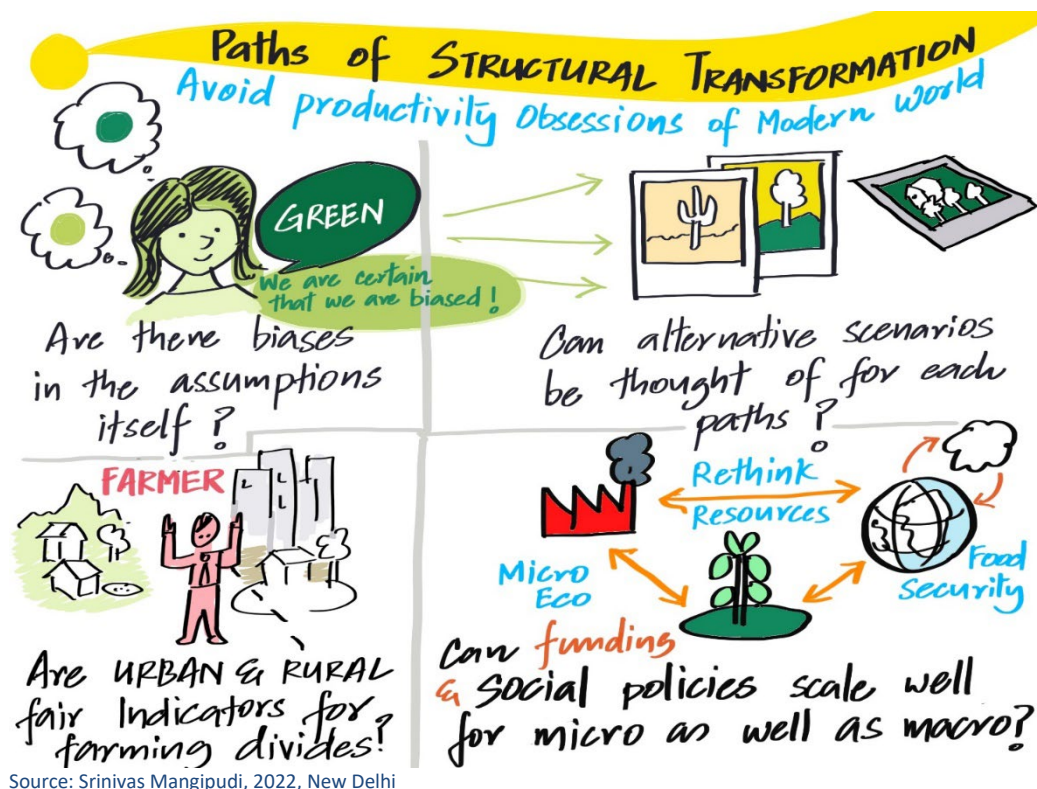 Paths of STRUCTURAL TRANSFORMATION
Avoid productivity Obsessions of Modern World
GREEN
We are certain
that we are biased!
Are there biases
in the assumptions
itself?
Can alternative scenarios
be thought of for each
paths?
FARMER
Are URBAN & RURAL
fair Indicators for
farming divides?
Rethink
Resources
Micro
Eco
Food
Security
Can funding
& social policies scale well
for micro as well as macro?
Source: Srinivas Mangipudi, 2022, New Delhi